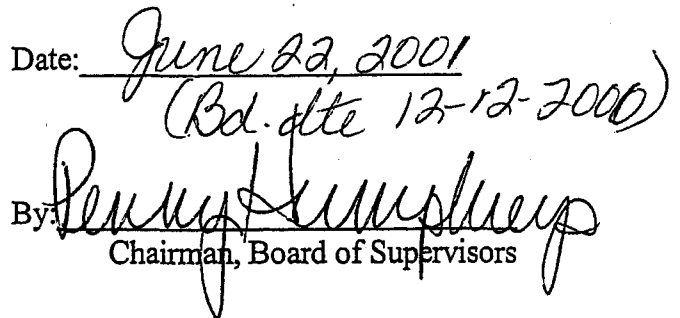 Date: June 22, 2001
(Bd. dte 12-12-2000)
By: Penny Humphreys
Chairman, Board of Supervisors